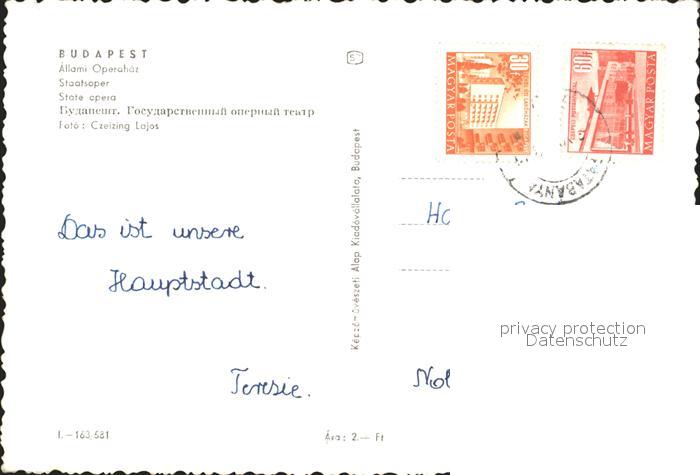 BUDAPEST
Állami Operaház
Staatsoper
State opera
Будапешт. Государственный оперный театр
Fotó: Czeizing Lajos
S
30f
MAGYAR POSTA
60f
MAGYAR POSTA
TATABÁNYA
Képzőművészeti Alap Kiadóvállalata, Budapest
Das ist unsere
Hauptstadt.
Teresie.
privacy protection
Datenschutz
I.—163,581
Ára: 2.— Ft